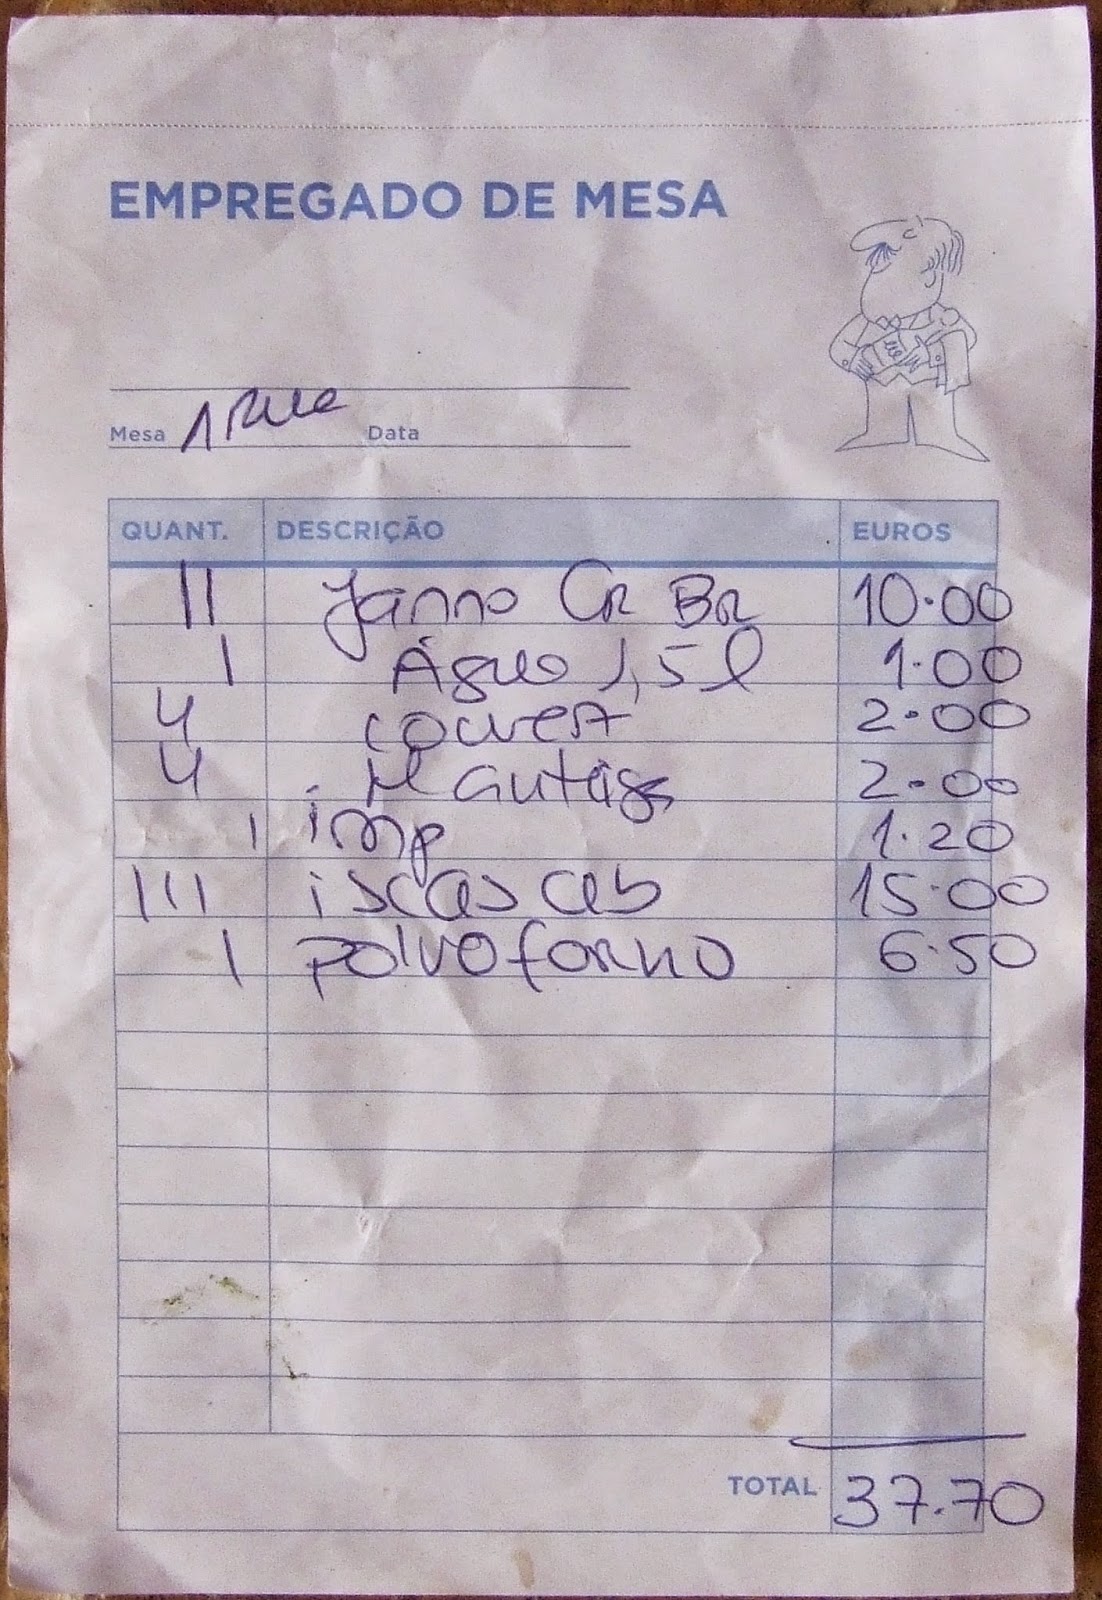 EMPREGADO DE MESA
Mesa 1 Rua Data
QUANT. DESCRIÇÃO EUROS
II Jarro CR BR 10.00
1 Água 1,5 l 1.00
4 couvert 2.00
4 Manteiga 2.00
1 imp 1.20
III iscas ceb 15.00
1 polvo forno 6.50
TOTAL 37.70